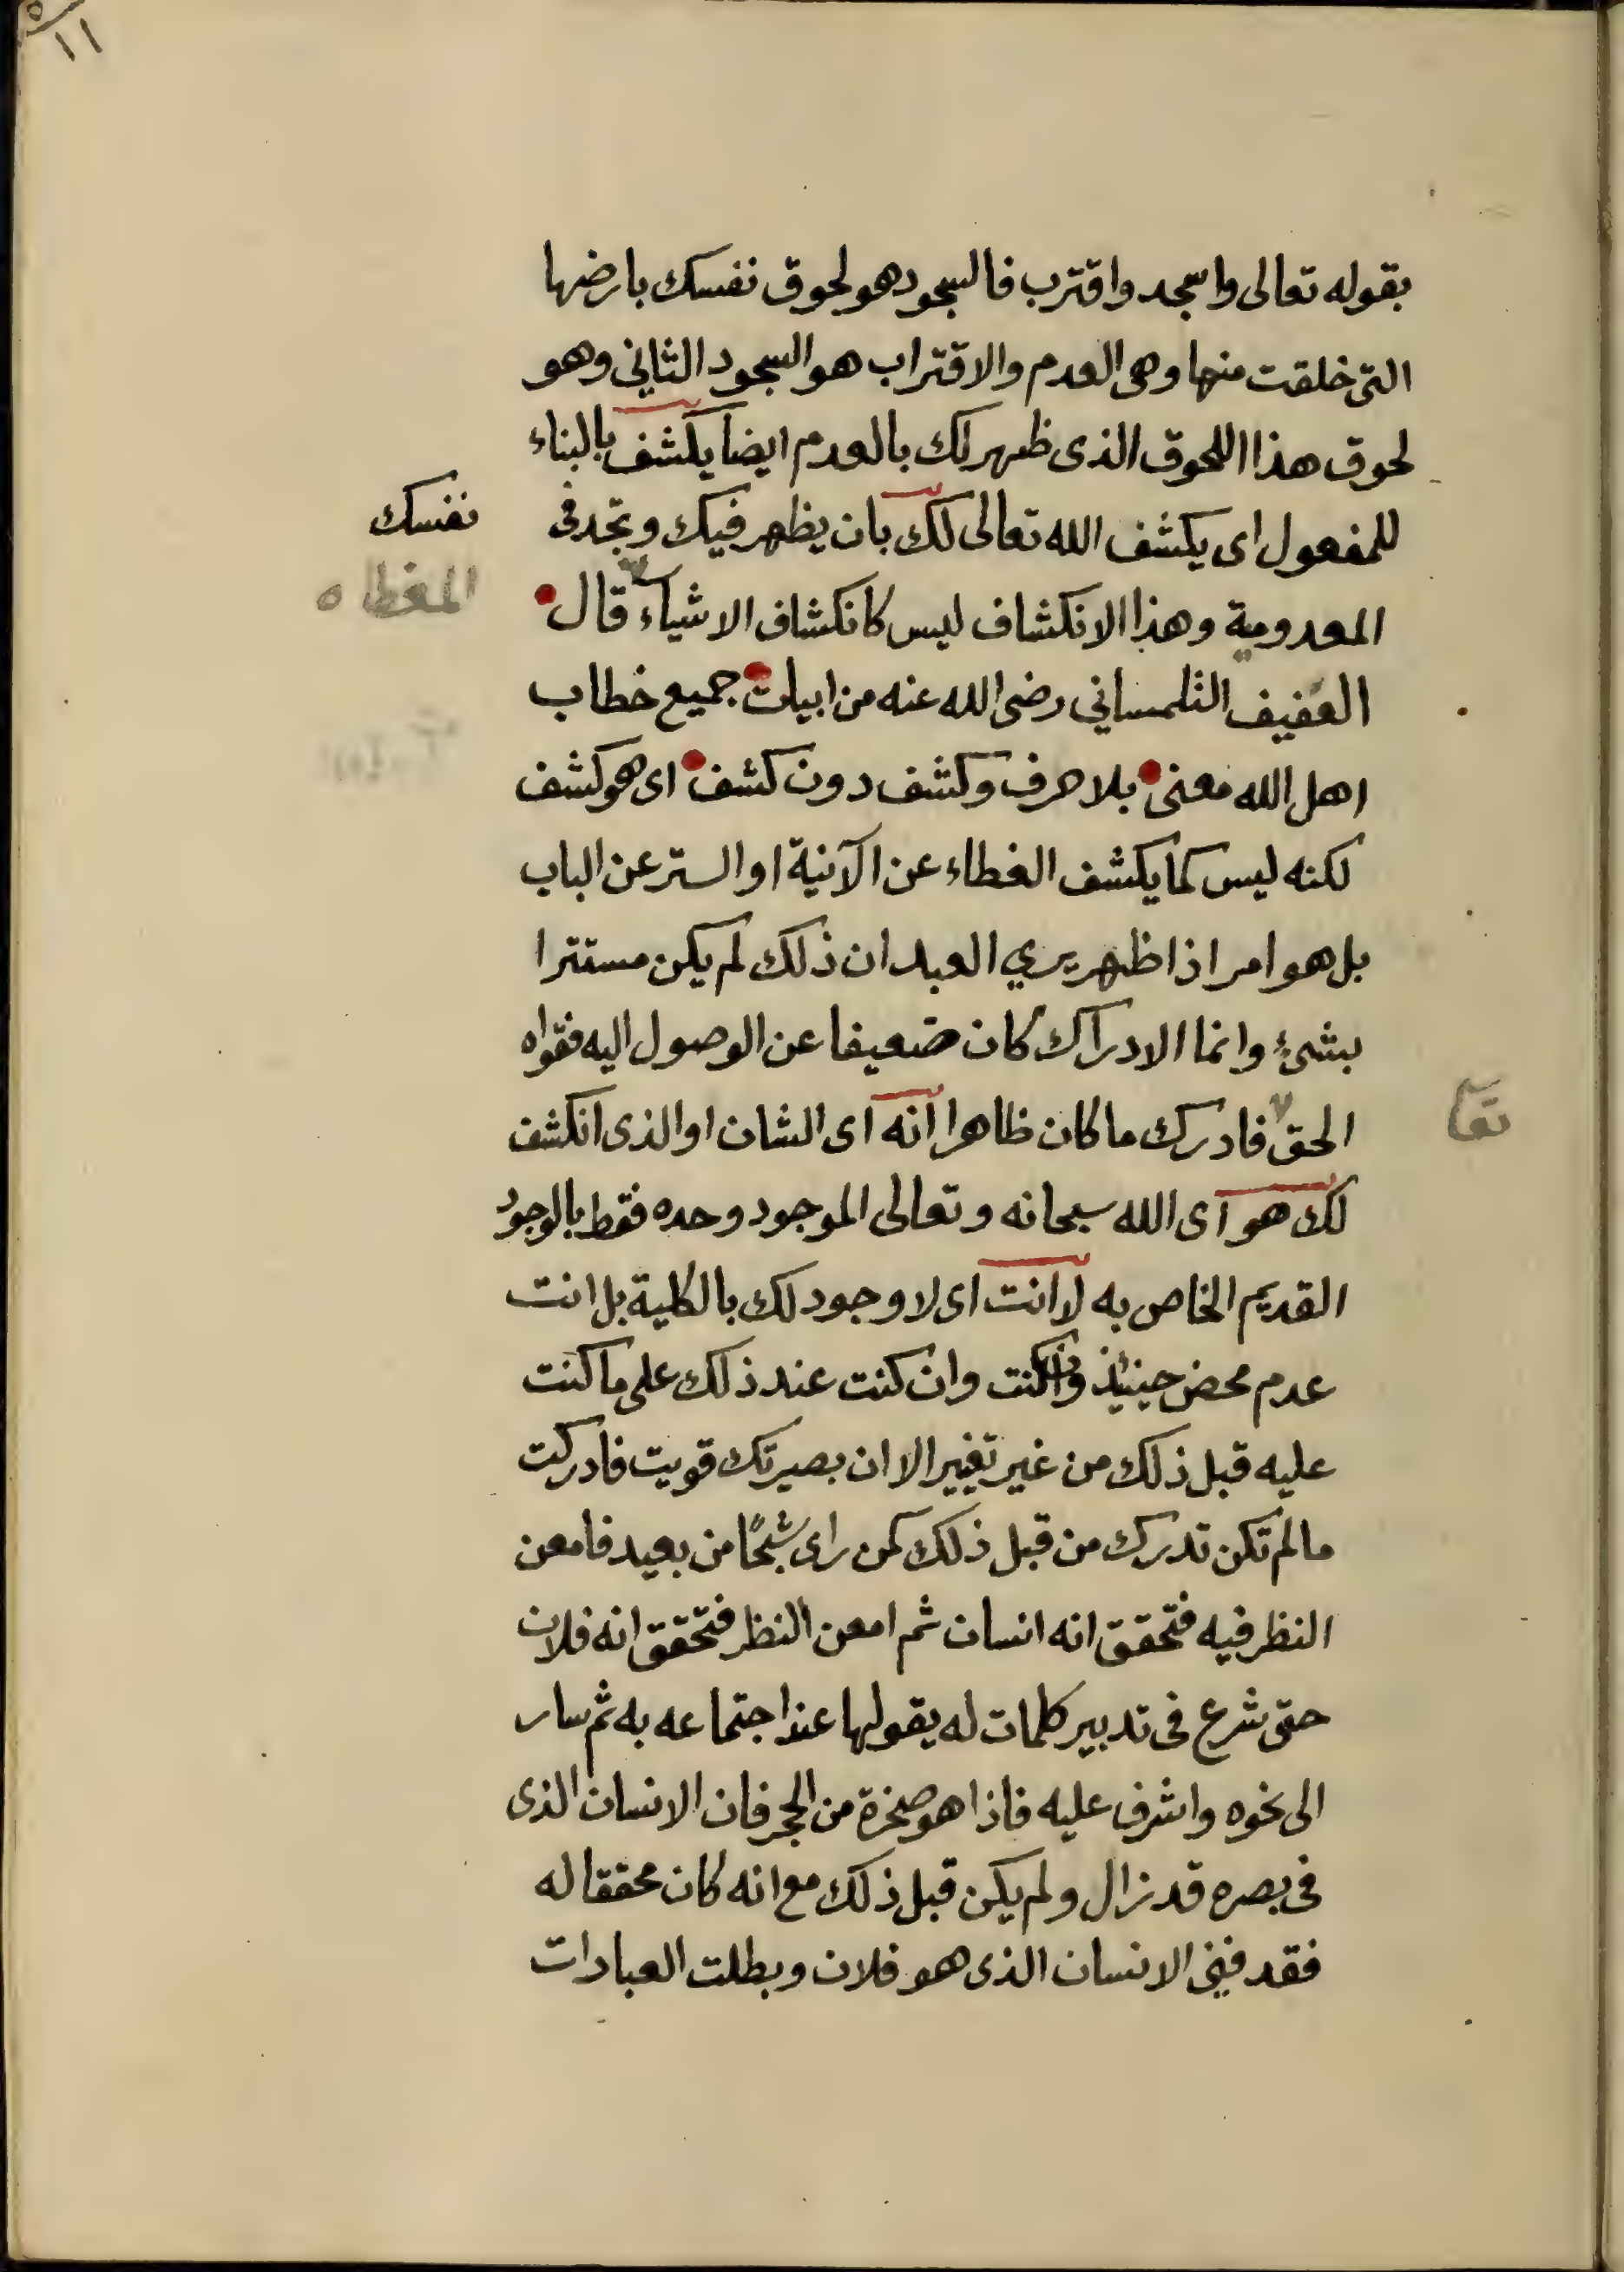 ١١
بقوله تعالى واسجد واقترب فالسجود هو لحوق نفسك بارضها
التى خلقت منها وهى العدم والاقتراب هو السجود الثاني وهو
لحوق هذا اللحوق الذى ظهر لك بالعدم ايضا يكشف بالبناء
للمفعول اى يكشف الله تعالى لك بان يظهر فيك وتجد فى
نفسك
المعدومية وهذا الانكشاف ليس كانكشاف الاشياء قال
المغطاه
العفيف التلمساني رضى الله عنه من ابيات جميع خطاب
اهل الله معنى بلا حرف وكشف دون كشف اى هو كشف
لكنه ليس كما يكشف الغطاء عن الآنية او الستر عن الباب
بل هو امر اذا ظهر يري العبد ان ذلك لم يكن مستترا
بشئ وانما الادراك كان ضعيفا عن الوصول اليه فقواه
الحق فادرك ما كان ظاهرا انه اى الشان او الذى انكشف
تعا
لك هو اى الله سبحانه وتعالى الموجود وحده فقط بالوجود
القديم الخاص به لا انت اى لا وجود لك بالكلية بل انت
عدم محض حينئذ وان كنت وان كنت عند ذلك على ما كنت
عليه قبل ذلك من غير تغيير الا ان بصيرتك قويت فادركت
مالم تكن تدرك من قبل ذلك كمن راى شبحًا من بعيد فامعن
النظر فيه فتحقق انه انسان ثم امعن النظر فتحقق انه فلان
حتى شرع فى تدبير كلمات له يقولها عند اجتماعه به ثم سار
الى نحوه واشرف عليه فاذا هو صخرة من الحجر فان الانسان الذى
فى بصره قد زال ولم يكن قبل ذلك مع انه كان محققا له
فقد فنى الانسان الذى هو فلان وبطلت العبادات